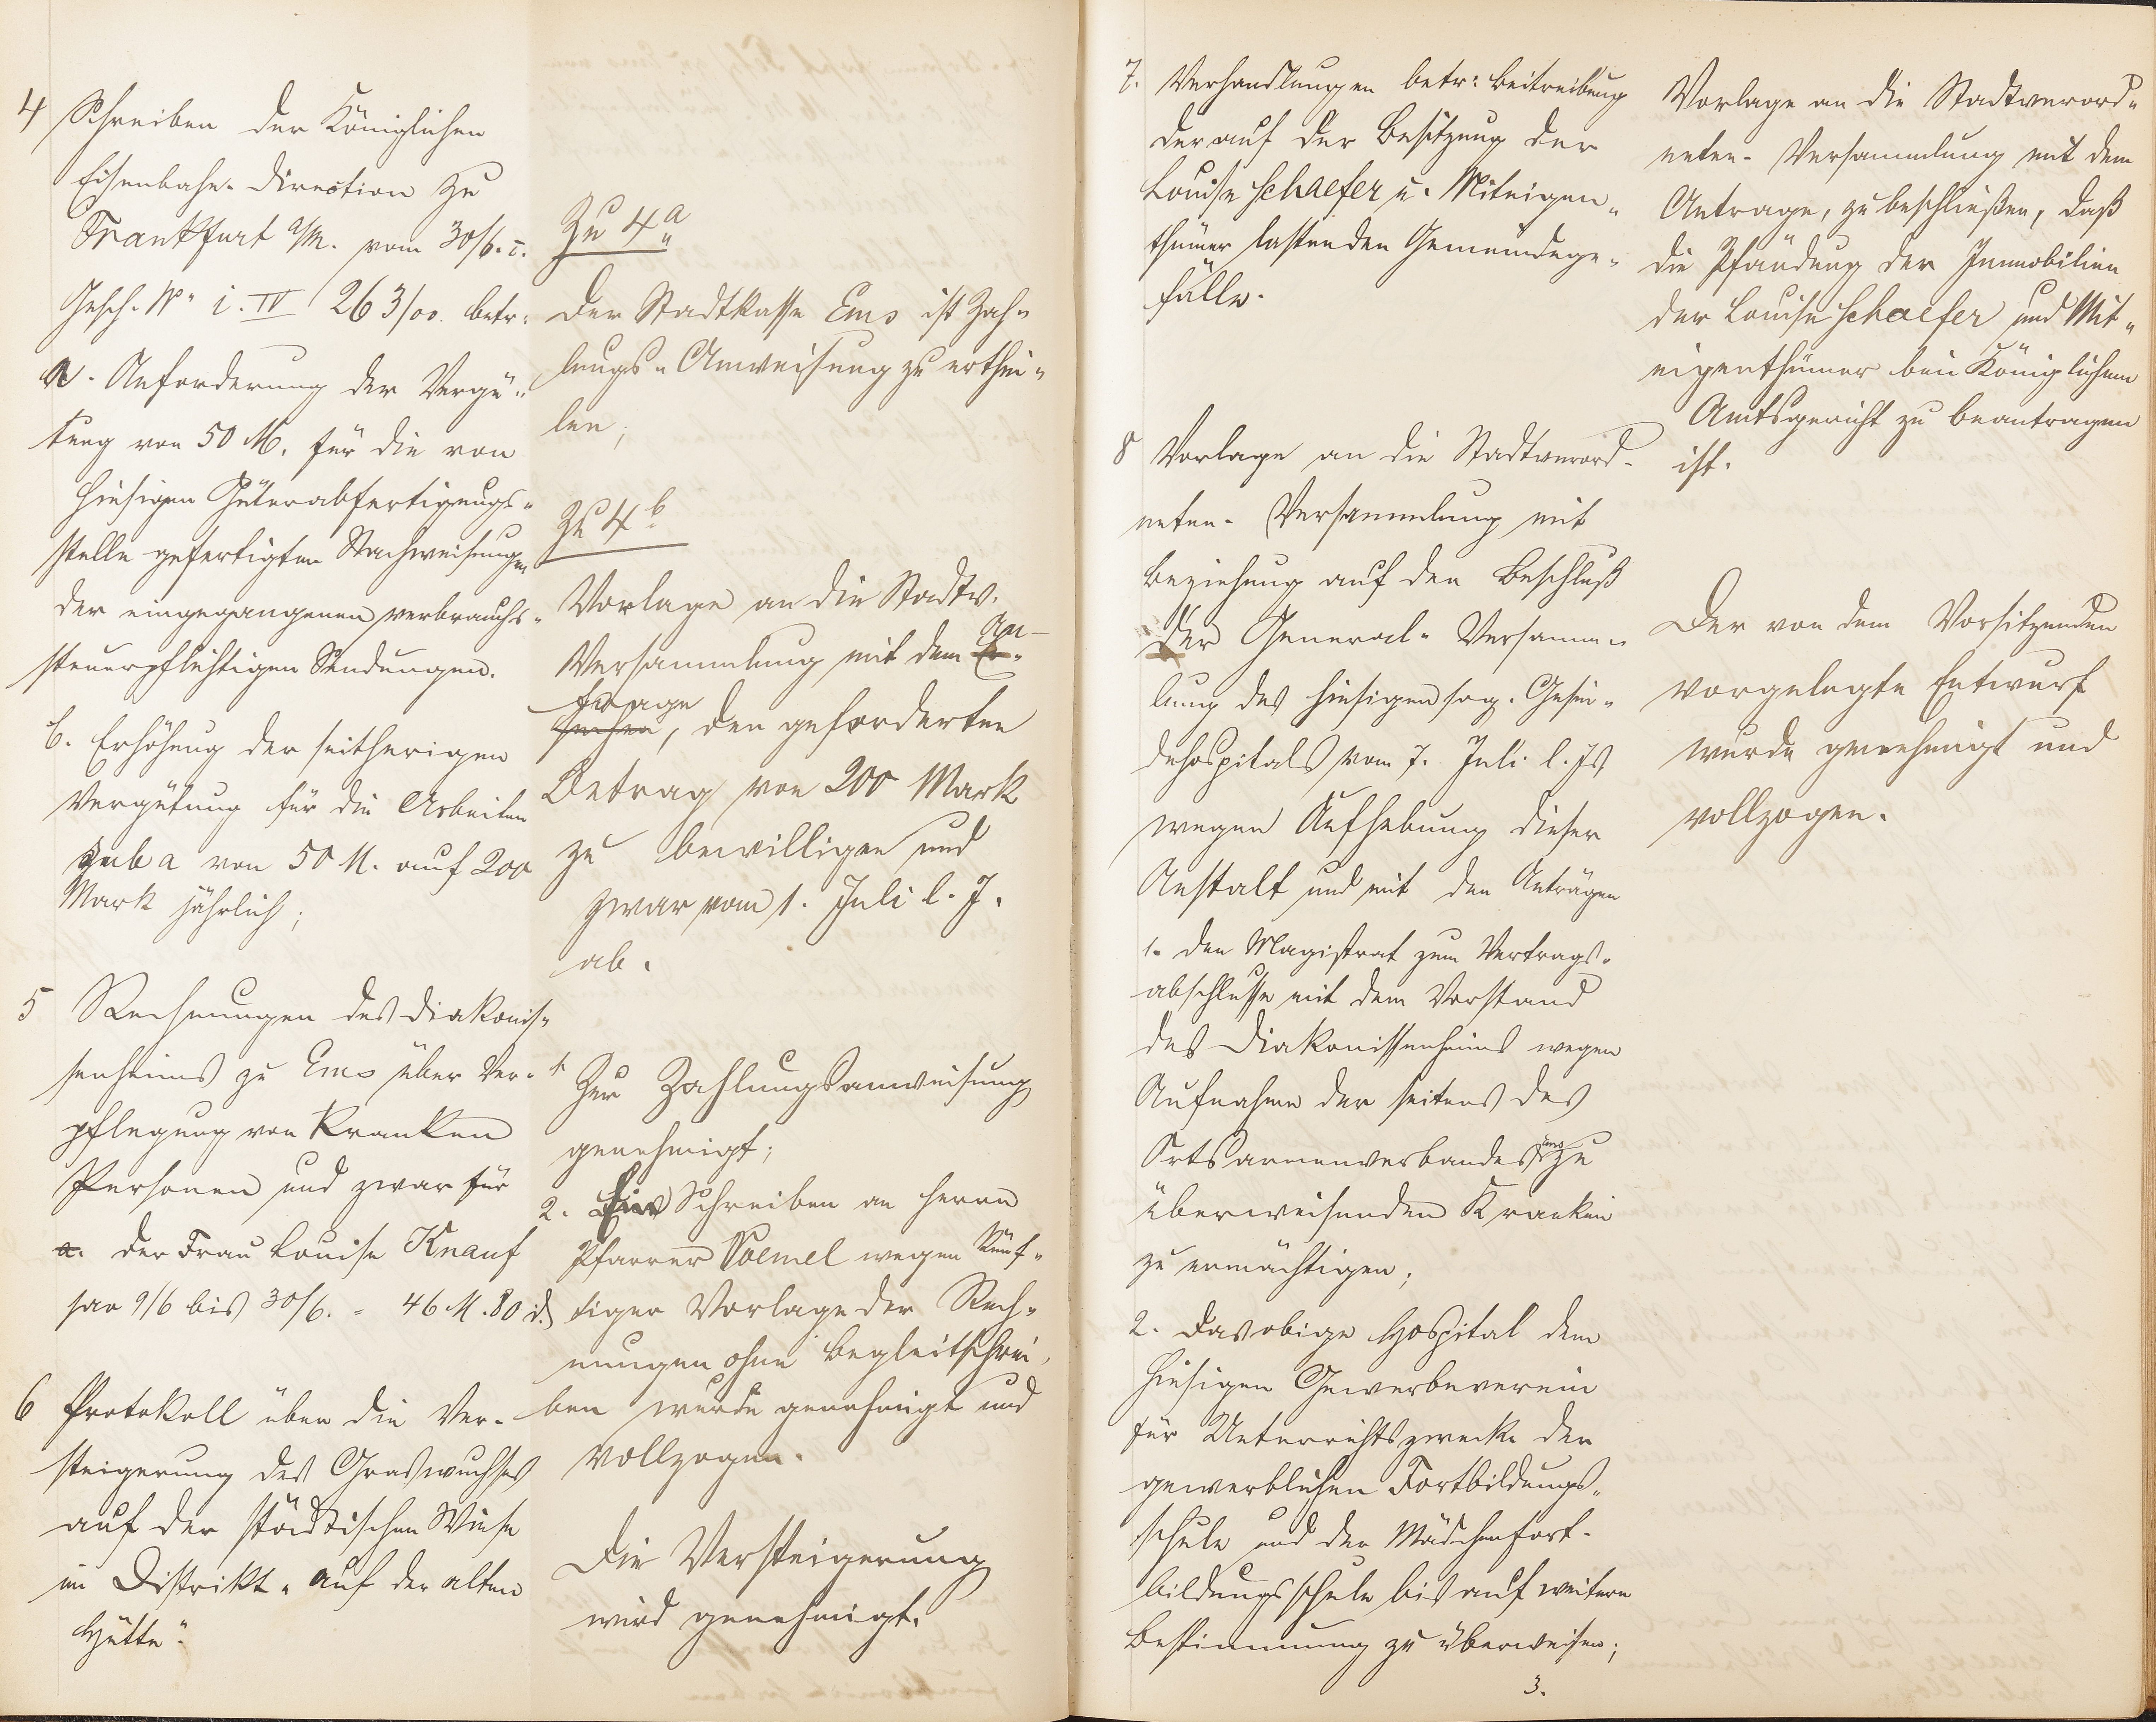 4 Schreiben der Königlichen
Eisenbahn-Direction zu
Frankfurt a/M. vom 30/6. c.
Gesch. No. i. IV 263/00. betr.
a. Anforderung der Vergü„
tung von 50 M. für die von
hiesigen Güterabfertigungs„
stelle gefertigten Nachweisungen
der eingegangenen verbrauchs„
steuerpflichtigen Sendungen.
b. Erhöhung der seitherigen
Vergütung für die Arbeiten
sub a von 50 M. auf 200
Mark jährlich;
Zu 4a
Der Stadtkasse Ems ist Zah„
lungs„Anweisung zu erthei„
len;
Zu 4b
Vorlage an die Stadtv.
Versammlung mit dem An-
trage, den geforderten
Betrag von 200 Mark
zu bewilligen und
zwar vom 1. Juli l. J.
ab.
5 Rechnungen des Diakonis„
senheims zu Ems über Ver„
pflegung von Kranken
Personen und zwar für
a. der Frau Louise Knauf
pro 9/6 bis 30/6. = 46 M. 80 d.
1. Zur Zahlungsanweisung
genehmigt;
2. Ein Schreiben an Herrn
Pfarrer Vömel wegen künf„
tiger Vorlage der Rech„
nungen ohne Begleitschrei„
ben wurde genehmigt und
vollzogen.
6 Protokoll über die Ver-
steigerung des Graswuchses
auf der städtischen Wiese
im Distrikt „auf der alten
Hütte“.
Die Versteigerung
wird genehmigt.
7. Verhandlungen betr: Beitreibung
der auf der Besitzung der
Louise Schaefer u. Miteigen„
thümer lastenden Gemeindege„
fälle.
Vorlage an die Stadtverord„
neten-Versammlung mit dem
Antrage, zu beschließen, daß
die Pfändung der Immobilien
der Louise Schaefer und Mit„
eigenthümer bei Königlichem
Amtsgericht zu beantragen
ist.
8 Vorlage an die Stadtverord-
neten-Versammlung mit
Beziehung auf den Beschluß
der General-Versamm„
lung des hiesigen sog. Gesin„
dehospitals vom 7. Juli l. Js
wegen Aufhebung dieser
Anstalt und mit den Anträgen
1. den Magistrat zum Vertrags„
abschlusse mit dem Vorstand
des Diakonissenheims wegen
Aufnahme der seitens des
Ortsarmenverbandes Ems zu
überweisenden Kranken
zu ermächtigen;
2. das obige Hospital dem
hiesigen Gewerbeverein
für Unterrichtszwecke der
gewerblichen Fortbildungs„
schule und der Mädchenfort-
bildungsschule bis auf weitere
Bestimmung zu überweisen;
3.
Der von dem Vorsitzenden
vorgelegte Entwurf
wurde genehmigt und
vollzogen.